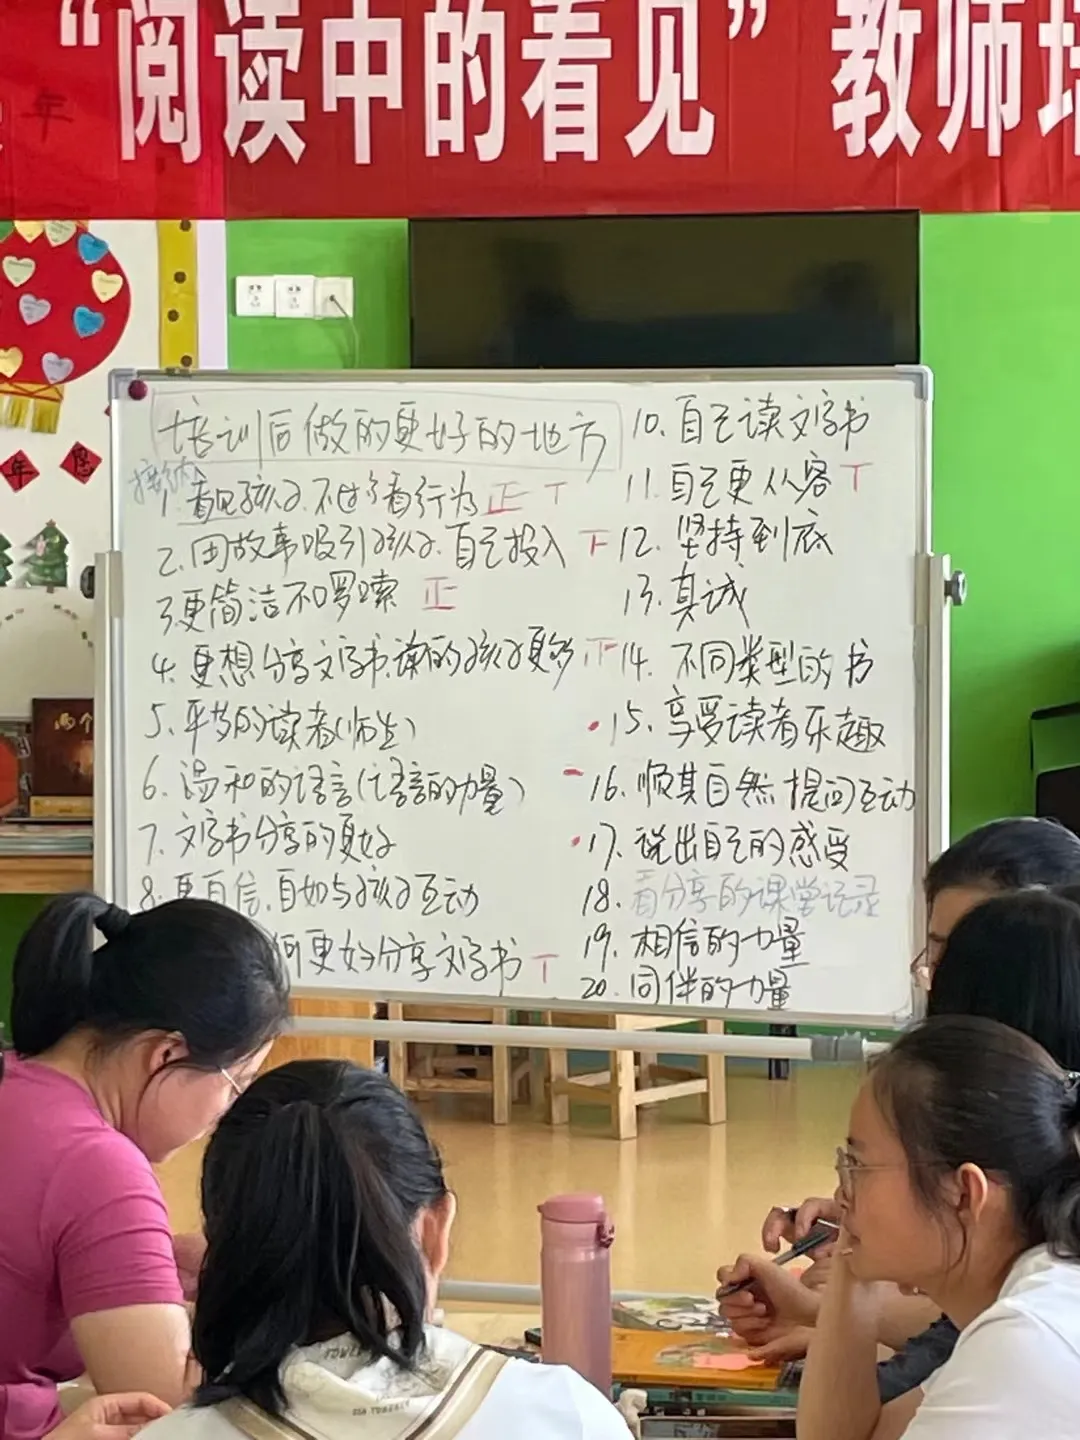 “阅读中的看见”教师培
年
年
两个
培训后做的更好的地方
接纳
1. 看见孩子.不过多看行为 正 丅
2. 用故事吸引孩子.自己投入 下
3. 更简洁不啰嗦 正
4. 更想分享文字书.读的孩子更多
5. 平等的读者(师生)
6. 温和的语言(语言的力量)
7. 文字书分享的更好
8. 更自信.自如与孩子互动
何更好分享文字书 丅
10. 自己读文字书
11. 自己更从容 丅
12. 坚持到底
13. 真诚
14. 不同类型的书
15. 享受读者乐趣
16. 顺其自然提问互动
17. 说出自己的感受
18. 看分享的课堂记录
19. 相信的力量
20. 同伴的力量